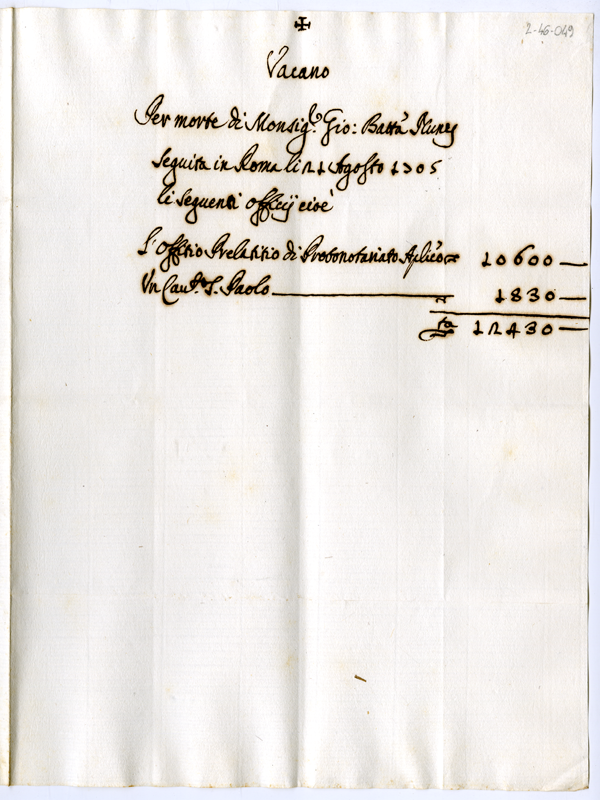 ✠
2-46-049
Vacano
Per morte di Monsig.r Gio: Batta Nunes
seguita in Roma li 21 Agosto
li seguenti officij cioè
L'offitio Prelatitio di Protonotariato Aplico 10600 —
Un Cau.to S. Paolo 1830 —
12430 —